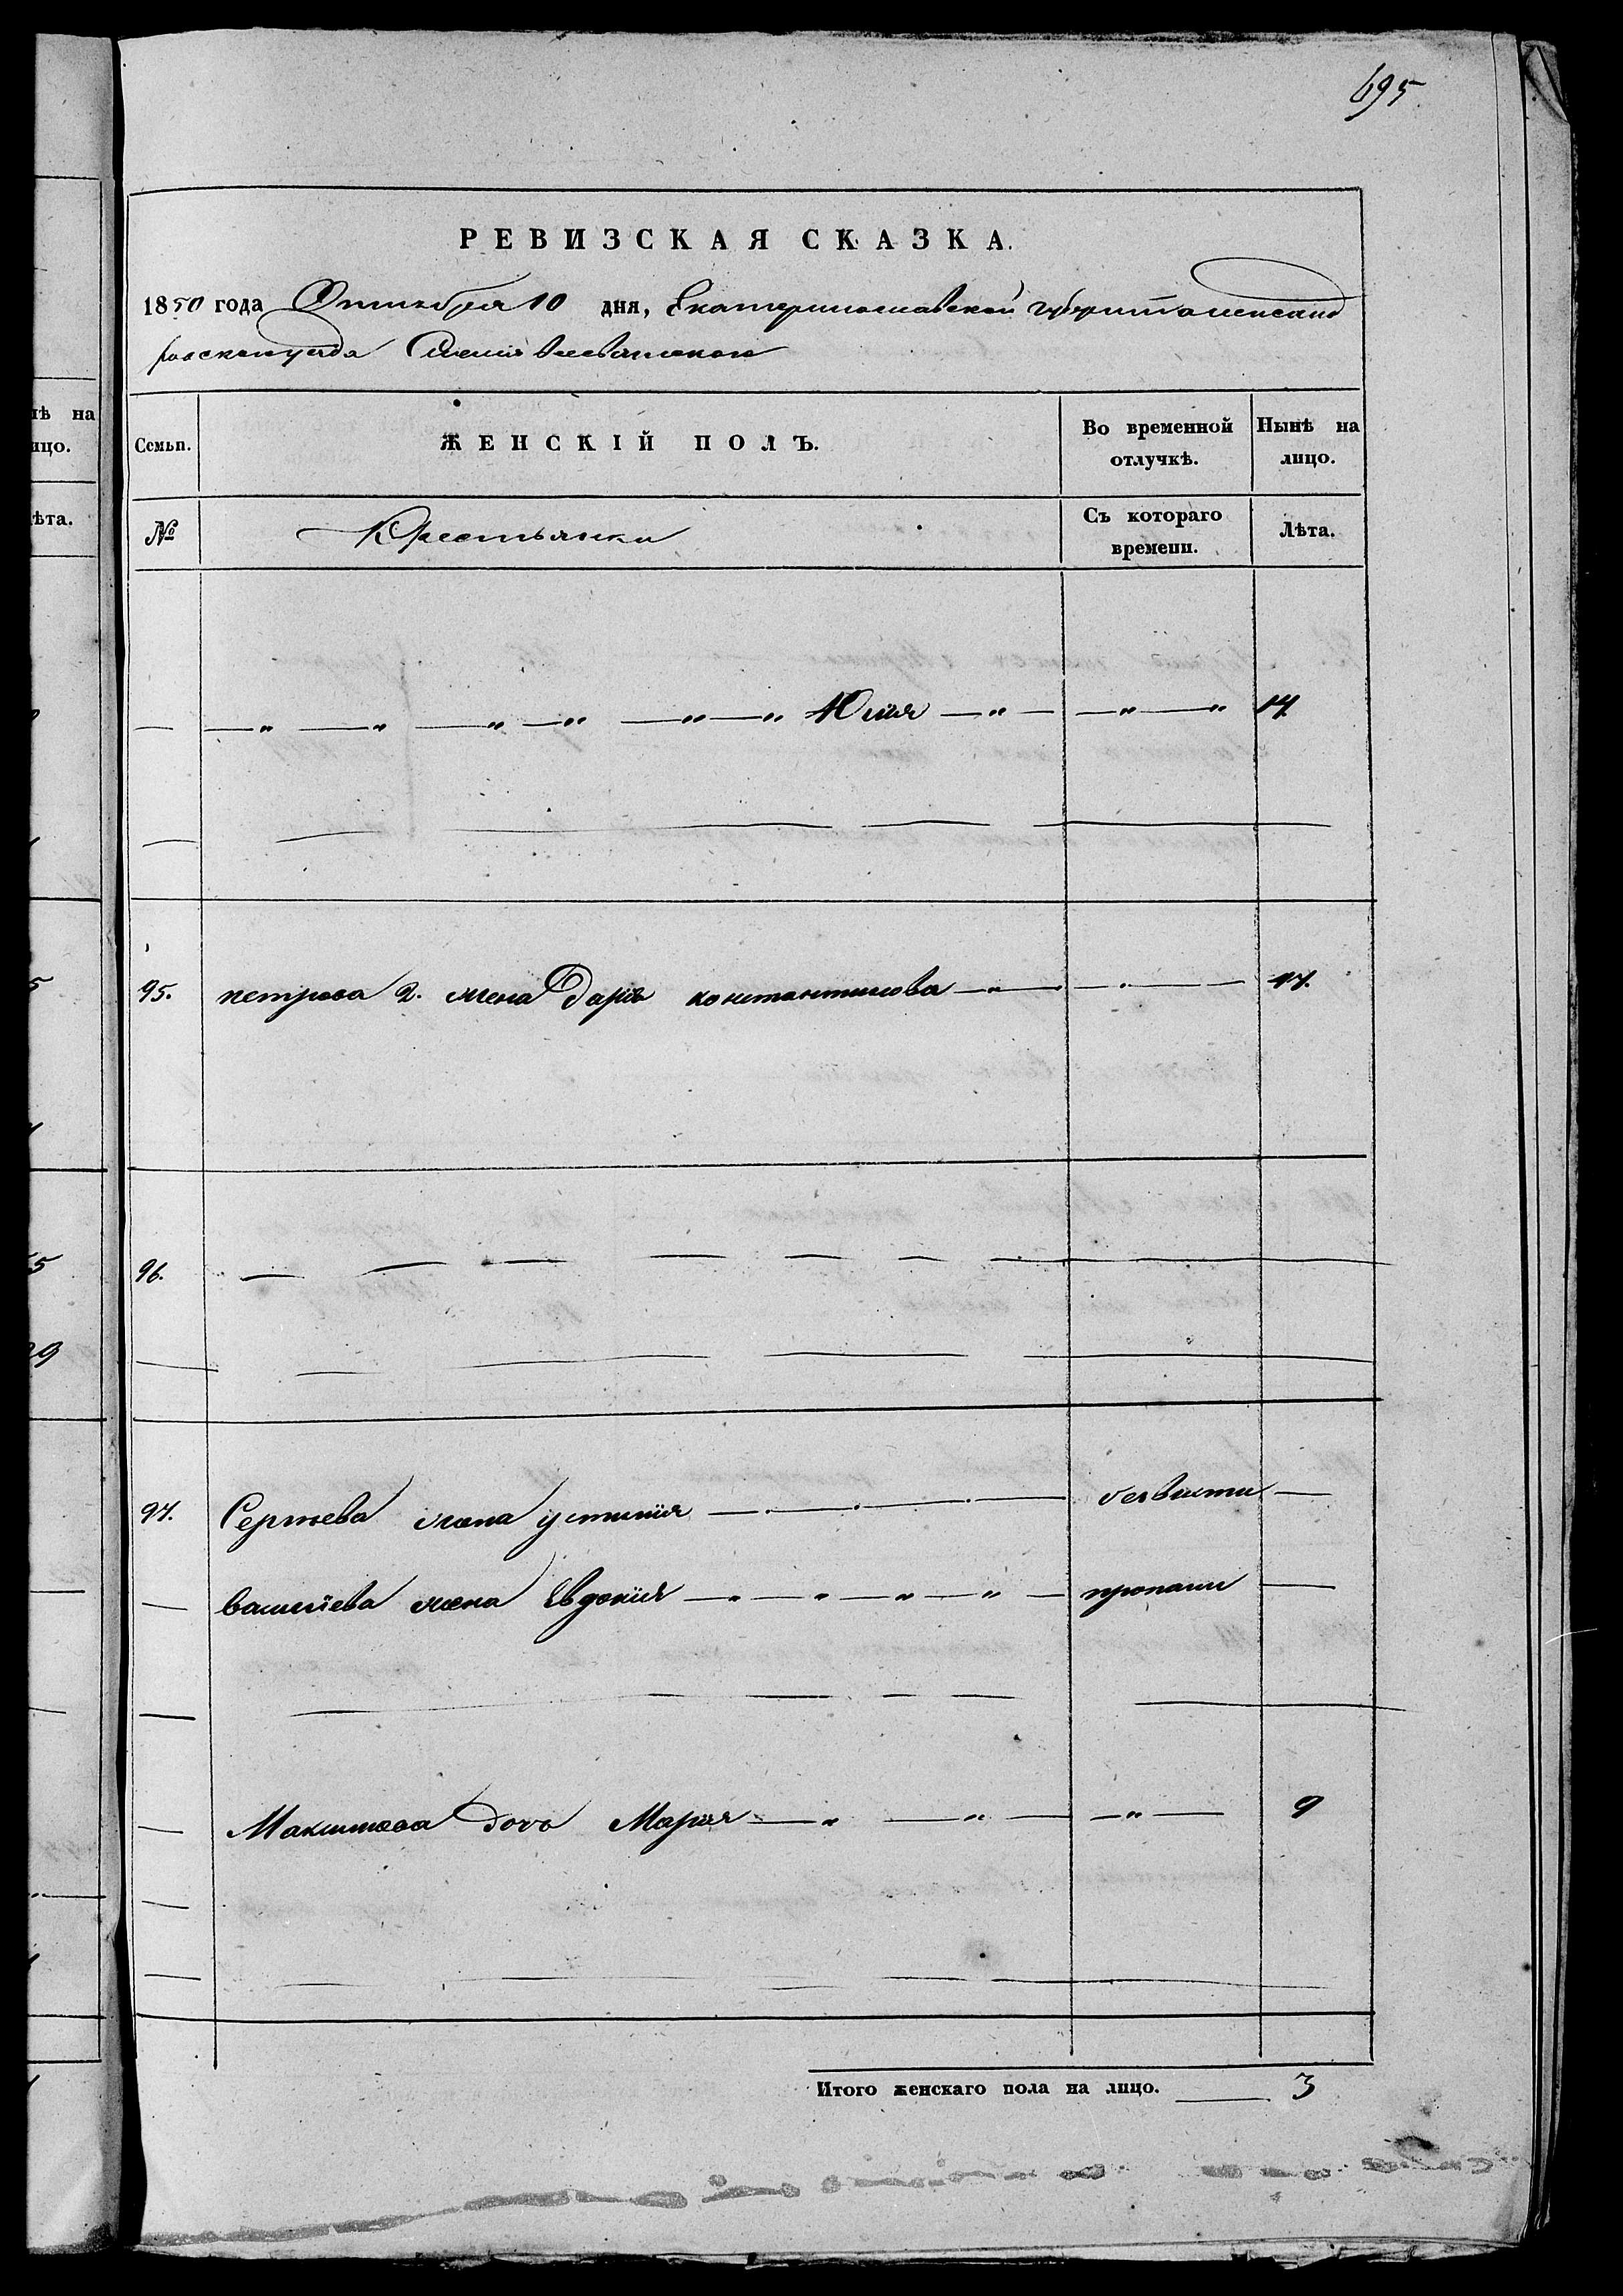 695
РЕВИЗСКАЯ СКАЗКА.
1850 года Октября 10 дня, Екатеринославской губерніи Александ
ровскаго уезда Имения
Семьи. ЖЕНСКІЙ ПОЛЪ. Во временной отлучкѣ. Нынѣ на лицо.
№ Крестьянки Съ котораго времени. Лѣта.
— „ — „ — „ — „ — „ — „ Юлія — „ — — „ — „ 17.
95. петрова 2. жена Дарія константинова — „ — 47.
96. — — —
97. Сергѣева жена устинія — безвисти —
— василіева жена Евдокія — „ — „ — „ — „ — пропали —
— Максимова дочь Марія — „ — „ — — „ — 9
Итого женскаго пола на лицо. 3
нѣ на
лицо.
лѣта.